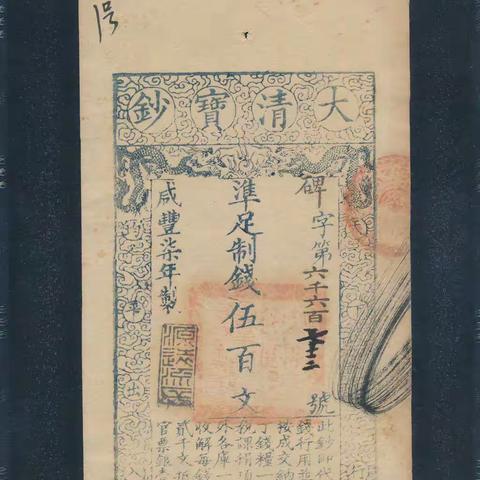 大清寶鈔
碑字第六千六百
號
準足制錢伍百文
咸豐柒年製
源遠流長
天
平
行
入
此鈔即代
錢行用並
核成交納
丁錢糧一
稅課捐項
外各庫一
收解每錢
貳千文抵
官票銀